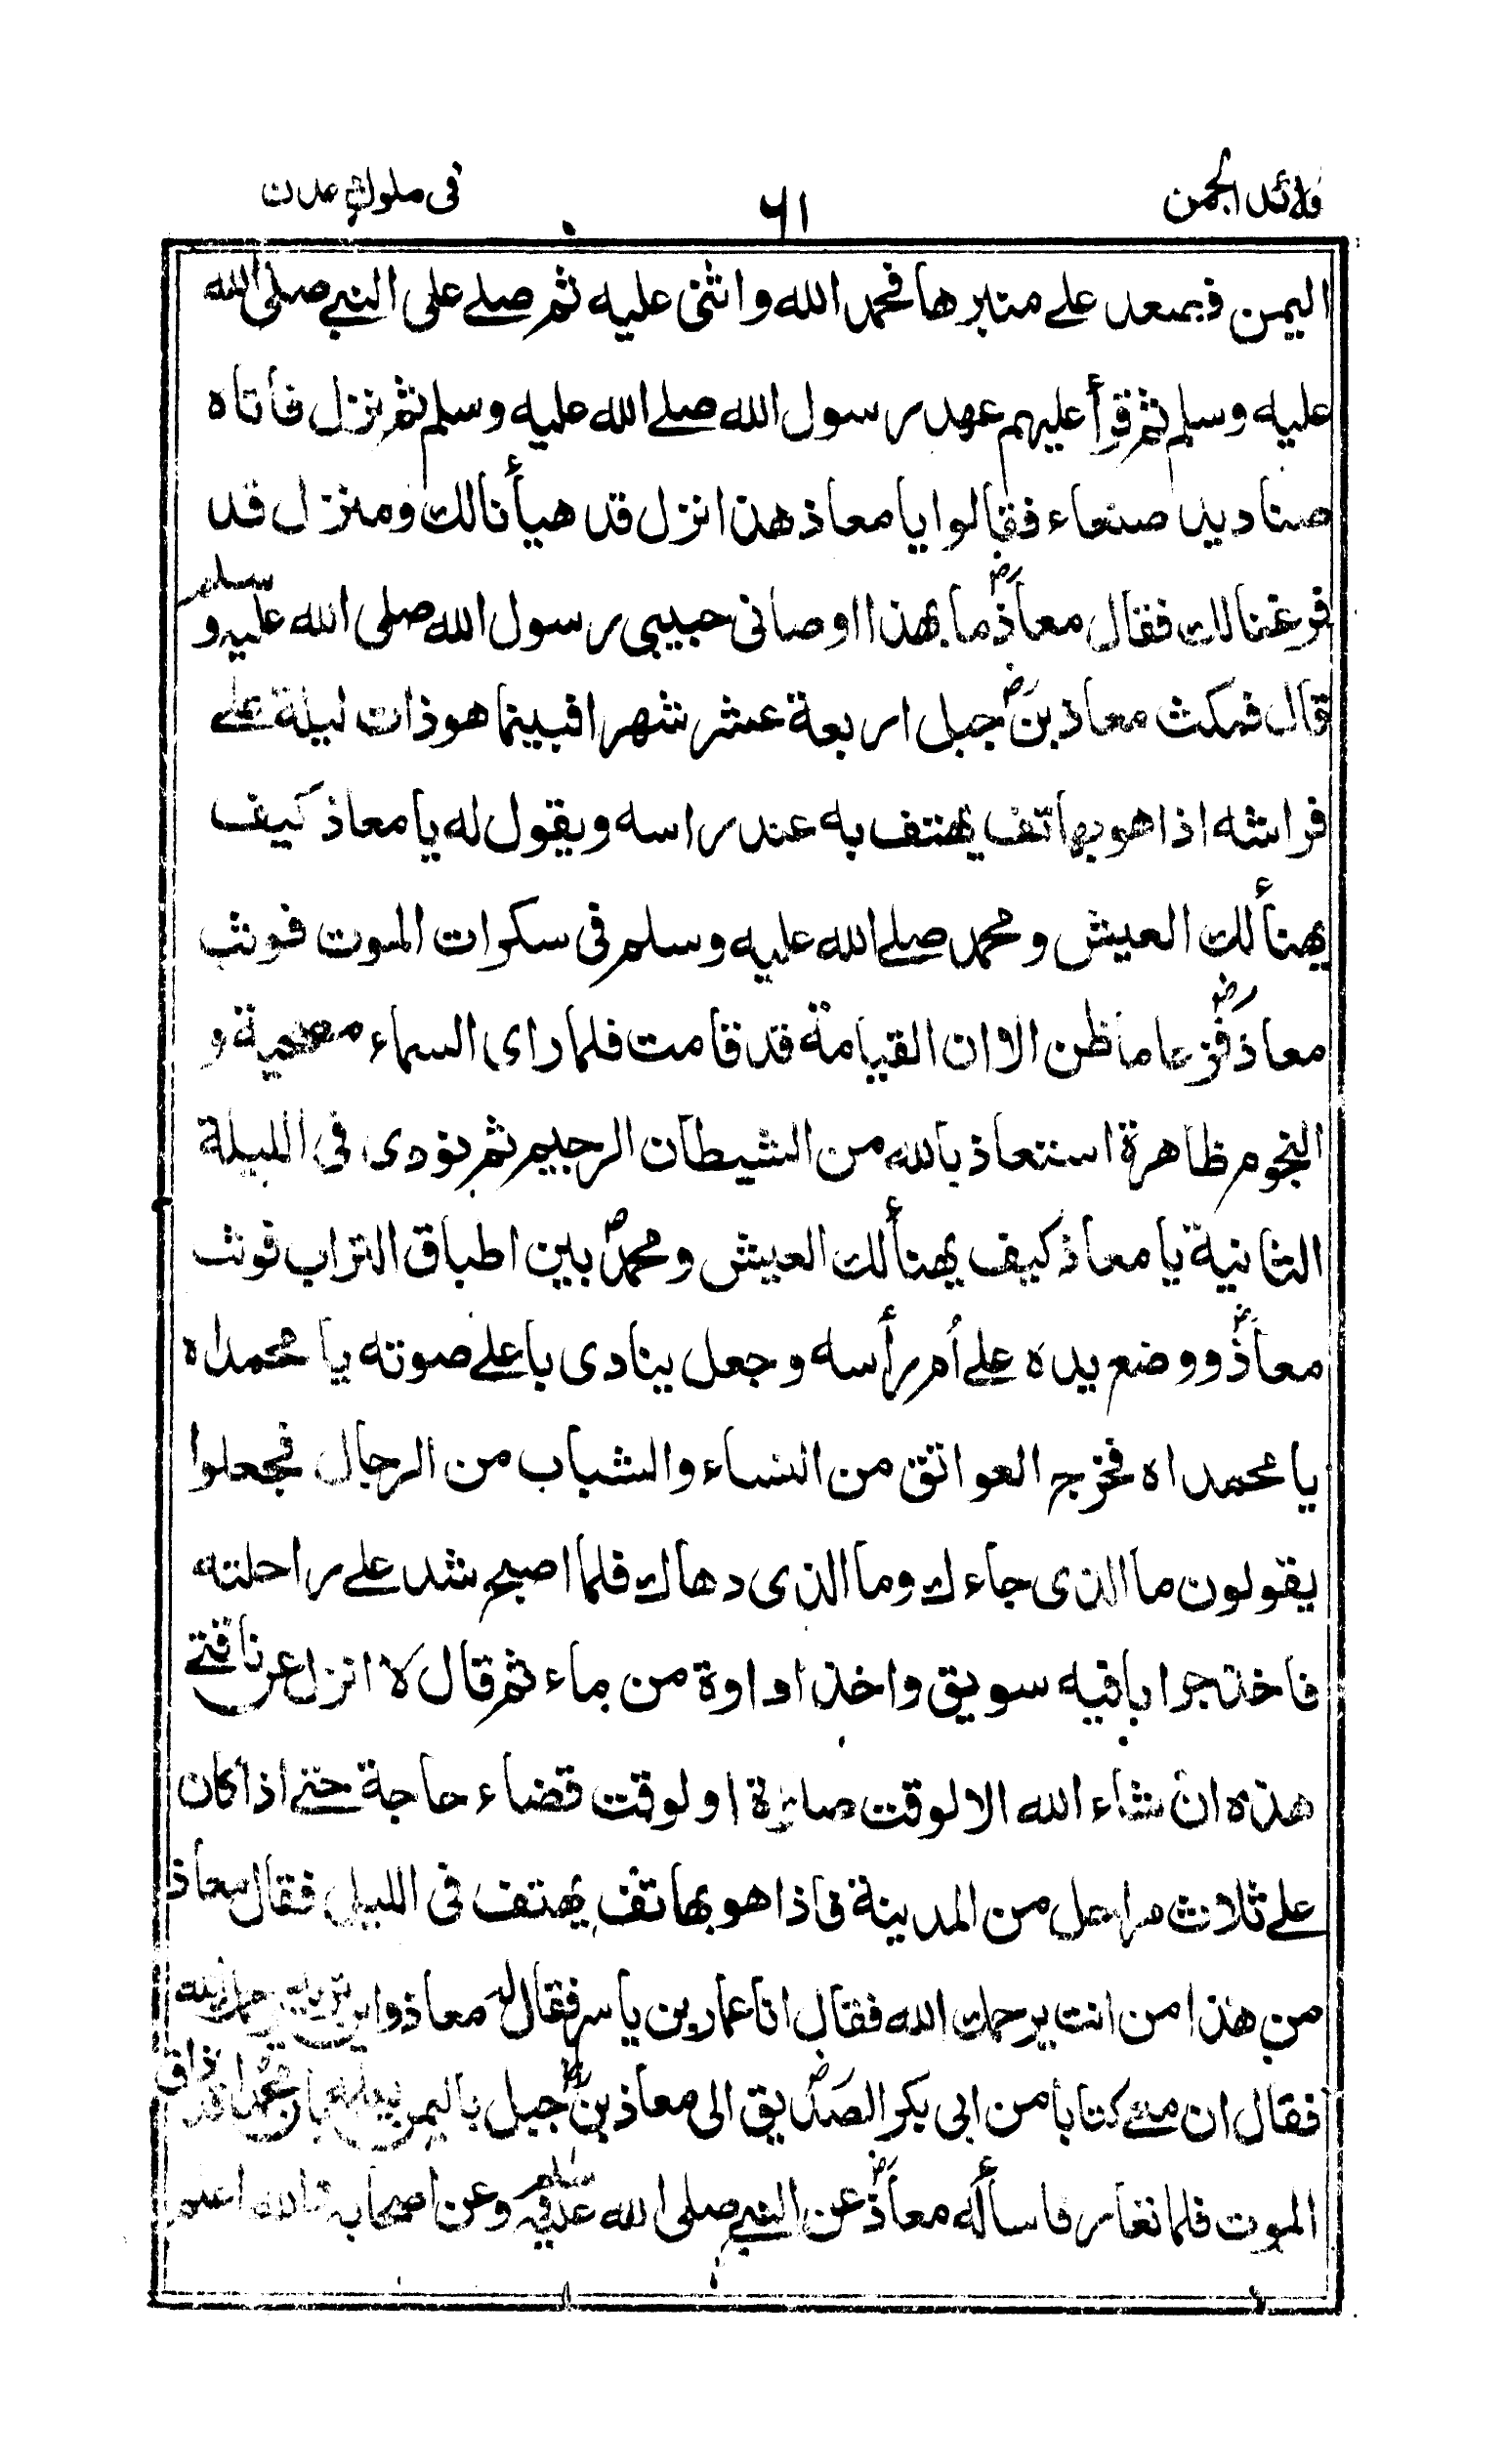 قلائد الجمن ٦١ فى ملوك عدن
اليمن فصعد على منبرها فحمد الله واثنى عليه ثم صلے على النبے صلى الله
عليه وسلم ثم قرأ عليهم عهد رسول الله صلے الله عليه وسلم ثم نزل فاتاه
صناديد صنعاء فقالوا يا معاذ هذا نزل قد هيأنا لك ومنزل قد
فرغنا لك فقال معاذؓ ما بهذا اوصانى حبيبى رسول الله صلى الله عليه وسلم
قال فمكث معاذ بنؓ جبل اربعة عشر شهرا فبينما هو ذات ليلة علے
فراشه اذا هو بهاتف يهتف به عند راسه ويقول له يا معاذ كيف
يهنأ لك العيش ومحمد صلے الله عليه وسلم فى سكرات الموت فوثب
معاذؓ فزعا ما ظن الا ان القيامة قد قامت فلما راى السماء مصحية و
النجوم ظاهرة استعاذ بالله من الشيطان الرجيم ثم نودى فى الليلة
الثانية يا معاذ كيف يهنأ لك العيش ومحمدؐ بين اطباق التراب فوثب
معاذؓ ووضع يده علے اُم رأسه وجعل ينادى باعلے صوته يا محمداه
يا محمداه فخرج العواتق من النساء والشباب من الرجال فجعلوا
يقولون ما الذى جاءك وما الذى دهاك فلما اصبح شد علے راحلته
فاخذ جرابا فيه سويق واخذ اداوة من ماء ثم قال لا انزل عن ناقتے
هذه ان شاء الله الا لوقت صلوة او لوقت قضاء حاجة حتے اذا كان
علے ثلاث مراحل من المدينة فاذا هو بهاتف يهتف فى الليل فقال معاذ
من هذا من انت يرحمك الله فقال انا عمار بن ياسر فقال له معاذ واين تريد يرحمك الله
فقال ان معے كتابا من ابى بكر الصديق الى معاذ بنؓ جبل باليمن يعلمه بان محمدا قد ذاق
الموت فلما تعارفا سأله معاذؓ عن النبے صلى الله عليه وسلم وعن اصحابه